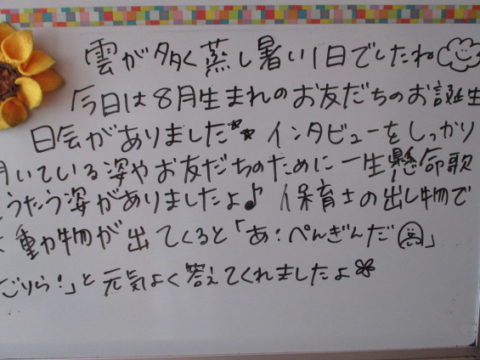 雲が多く蒸し暑い1日でしたね
今日は8月生まれのお友だちのお誕生
日会がありました インタビューをしっかり
いている姿やお友だちのために一生懸命歌
うたう姿がありましたよ♪ 保育士の出し物で
動物が出てくると「あ!ぺんぎんだ」
ごりら!」と元気よく答えてくれましたよ